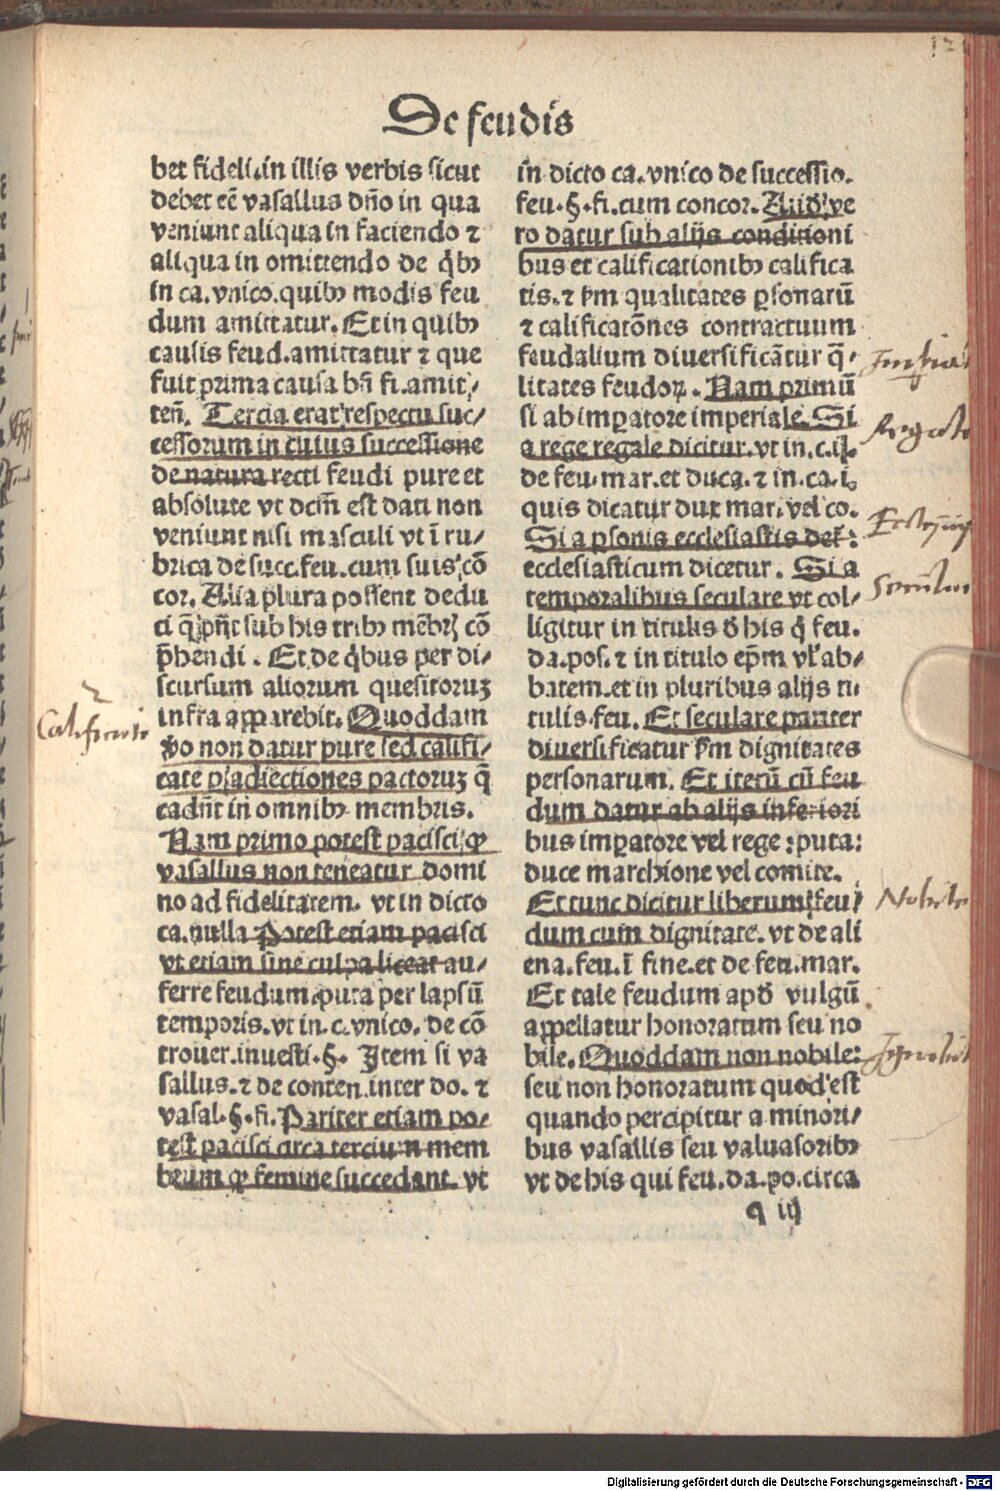 De feudis
bet fideli.in illis verbis sicut
debet eē vasallus dn̄o in qua
veniunt aliqua in faciendo ⁊
aliqua in omittendo de q̄bꝰ
in ca.vnico.quibꝰ modis feu
dum amittatur. Et in quibꝰ
causis feud.amittatur ⁊ que
fuit prima causa bn̄ fi.amit⸗
ten̄. Tercia erat respectu suc⸗
cessorum in cuius successione
de natura recti feudi pure et
absolute vt dcm̄ est dati non
veniunt nisi masculi vt ī ru⸗
brica de succ.feu.cum suis cō
cor. Alia plura possent dedu
ci q̄ pn̄t sub his tribꝰ mēbrꝭ cō
p̄hendi . Et de q̄bus per di⸗
scursum aliorum quesitoruꝫ
infra apparebit. Quoddam
ṽo non datur pure sed califi⸗
cate ꝑ adiectiones pactoruꝫ q̄
cadn̄t in omnibꝰ membris.
Nam primo potest pacisci ꝙ
vasallus non teneatur domi
no ad fidelitatem. vt in dicto
ca.nulla Potest etiam pacisci
vt etiam sine culpa liceat au⸗
ferre feudum.puta per lapsū
temporis.vt in.c.vnico. de cō
trouer.inuesti.§. Item si va
sallus.⁊ de conten.inter do. ⁊
vasal.§.fi. Pariter etiam po⸗
test pacisci circa tercium mem
brum ꝙ femine succedant. vt
in dicto ca.vnico de successio.
feu.§.fi.cum concor. Aliud ve
ro datur sub alijs conditioni
bus et calificationibꝰ califica
tis.⁊ ẜm qualitates ꝑsonarū
⁊ calificatōnes contractuum
feudalium diuersificātur q̄⸗
litates feudoꝝ. Nam primū
si ab imꝑatore imperiale. Si
a rege regale dicitur.vt in.c.ij.
de feu.mar.et duca.⁊ in.ca.i.
quis dicatur dux mar.vel co.
Si a ꝑsonis ecclesiastis det̄:
ecclesiasticum dicetur. Si a
temporalibus seculare vt col⸗
ligitur in titulis đ his q̄ feu.
da.pos.⁊ in titulo ep̄m vľ ab⸗
batem.et in pluribus alijs ti⸗
tulis.feu. Et seculare pariter
diuersificatur ẜm dignitates
personarum. Et iterū cū feu
dum datur ab alijs inferiori
bus imꝑatore vel rege:puta:
duce marchione vel comite.
Et tunc dicitur liberum feu⸗
dum cum dignitate.vt de ali
ena.feu.ī fine.et de feu.mar.
Et tale feudum apđ vulgū
appellatur honoratum seu no
bile. Quoddam non nobile:
seu non honoratum quod est
quando percipitur a minori⸗
bus vasallis seu valuasoribꝰ
vt de his qui feu.da.po.circa
q iij
Digitalisierung gefördert durch die Deutsche Forschungsgemeinschaft - DFG